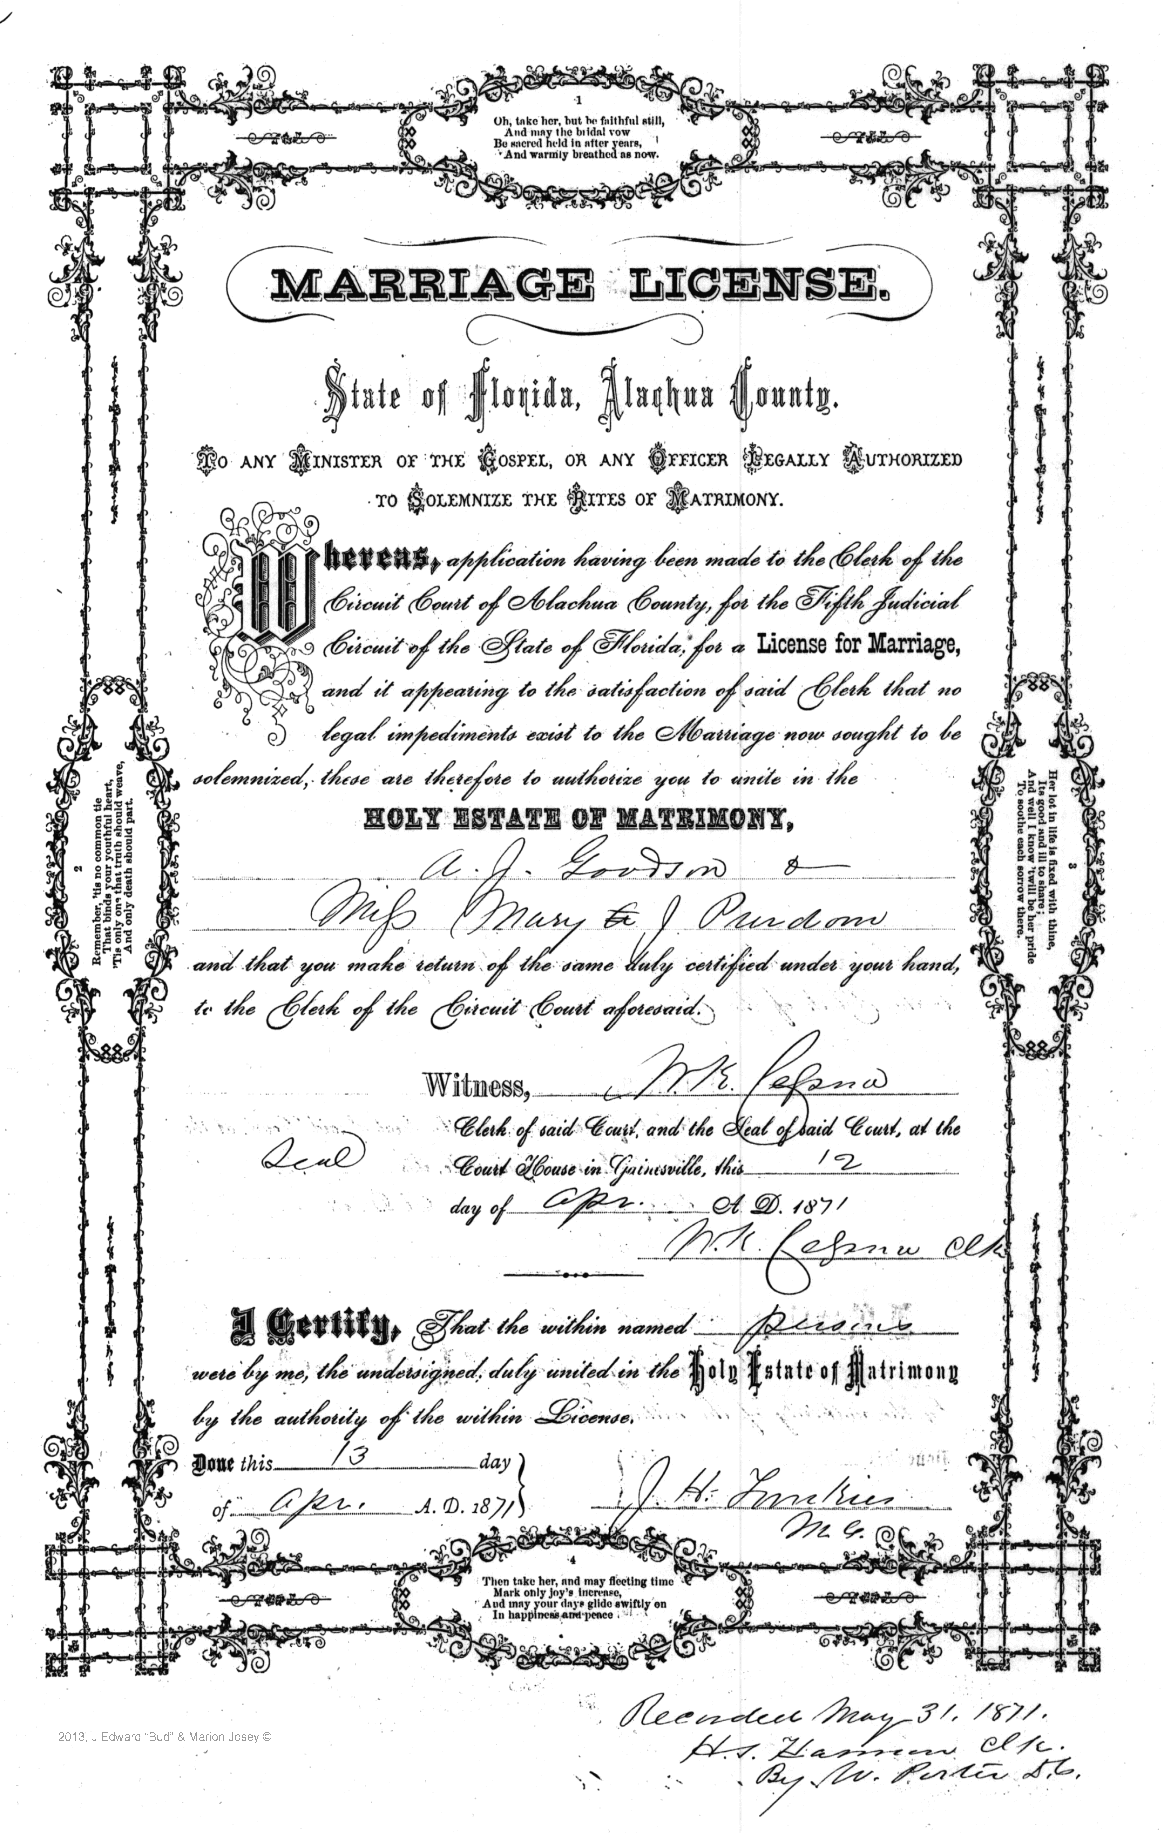 1
Oh, take her, but be faithful still,
And may the bridal vow
Be sacred held in after years,
And warmly breathed as now.
MARRIAGE LICENSE.
State of Florida, Alachua County.
TO ANY MINISTER OF THE GOSPEL, OR ANY OFFICER LEGALLY AUTHORIZED
TO SOLEMNIZE THE RITES OF MATRIMONY.
Whereas, application having been made to the Clerk of the
Circuit Court of Alachua County, for the Fifth Judicial
Circuit of the State of Florida, for a License for Marriage,
and it appearing to the satisfaction of said Clerk that no
legal impediments exist to the Marriage now sought to be
solemnized, these are therefore to authorize you to unite in the
HOLY ESTATE OF MATRIMONY,
A. J. Goodson &
Miss Mary J Purdom
and that you make return of the same duly certified under your hand,
to the Clerk of the Circuit Court aforesaid.
2
Remember, 'tis no common tie
That binds your youthful heart,
'Tis only one that truth should weave,
And only death should part.
3
Her lot in life is fixed with thine,
Its good and ill to share;
And well I know 'twill be her pride
To soothe each sorrow there.
Witness, W. K. Cessna
Clerk of said Court, and the Seal of said Court, at the
Seal
Court House in Gainesville, this 12
day of Apr. A. D. 1871
W. K. Cessna Clk
I Certify, That the within named persons
were by me, the undersigned, duly united in the Holy Estate of Matrimony
by the authority of the within License.
Done this 13 day
of Apr. A. D. 1871
J. H.
M. G.
4
Then take her, and may fleeting time
Mark only joy's increase,
And may your days glide swiftly on
In happiness and peace
Recorded May 31. 1871.
H. S. Harmon Clk.
By W. Porter D.C.
2013, J Edward "Bud" & Marion Josey ©